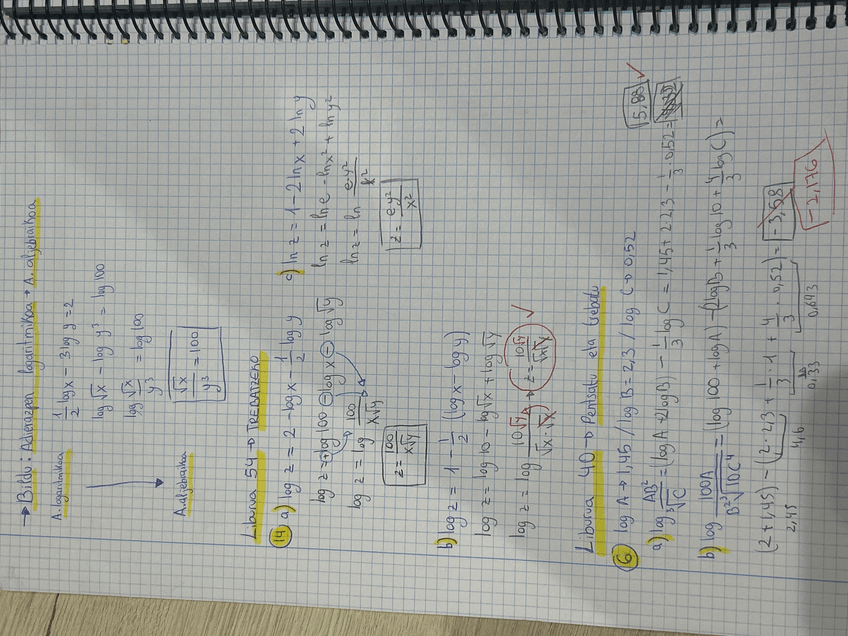 → Bildu: Adierazpen logaritmikoa → A. aljebraikoa
A. logaritmikoa
1/2 log x - 3 log y = 2
log √x - log y³ = log 100
log √x/y³ = log 100
A. aljebraikoa
√x/y³ = 100
Liburua 54 → TREBATZEKO
14 a) log z = 2 - log x - 1/2 log y
log z = log 100 - log x - log √y
log z = log 100/x√y
z = 100/x√y
b) log z = 1 - 1/2 (log x - log y)
log z = log 10 - log √x + log √y
log z = log 10√y/√x·√x → z = 10√y/√x√x ✓
c) ln z = 1 - 2 ln x + 2 ln y
ln z = ln e - ln x² + ln y²
ln z = ln e·y²/x²
z = e·y²/x²
Liburua 40 → Pentsatu eta trebatu
6 log A → 1,45 / log B = 2,3 / log C → 0,52
a) log AB²/³√C = (log A + 2 log B) - 1/3 log C = 1,45 + 2·2,3 - 1/3·0,52 = 5,88 ✓
b) log 100A/B²·³√10C⁴ = (log 100 + log A) - (2 log B + 1/3 log 10 + 4/3 log C) =
(2 + 1,45) - (2·2,3 + 1/3·1 + 4/3·0,52) = -3,58
2,45
4,6
0,33
0,643
-2,176